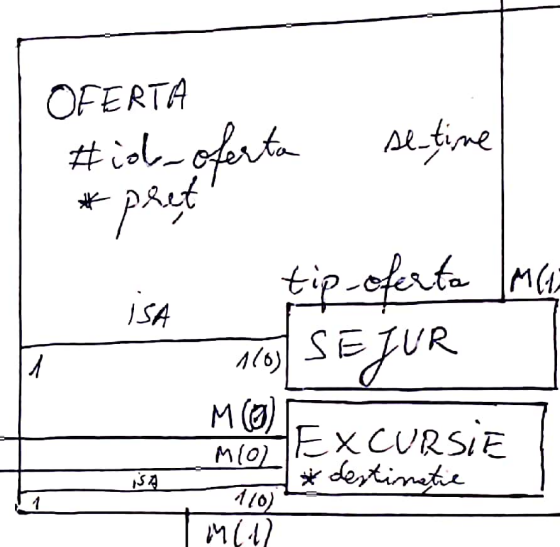 OFERTA
#id_oferta
* preț
se_ține
tip_oferta M(1)
ISA
1 1(0) SEJUR
M(0)
M(0) EXCURSIE
* destinatie
isa
1 1(0)
M(1)